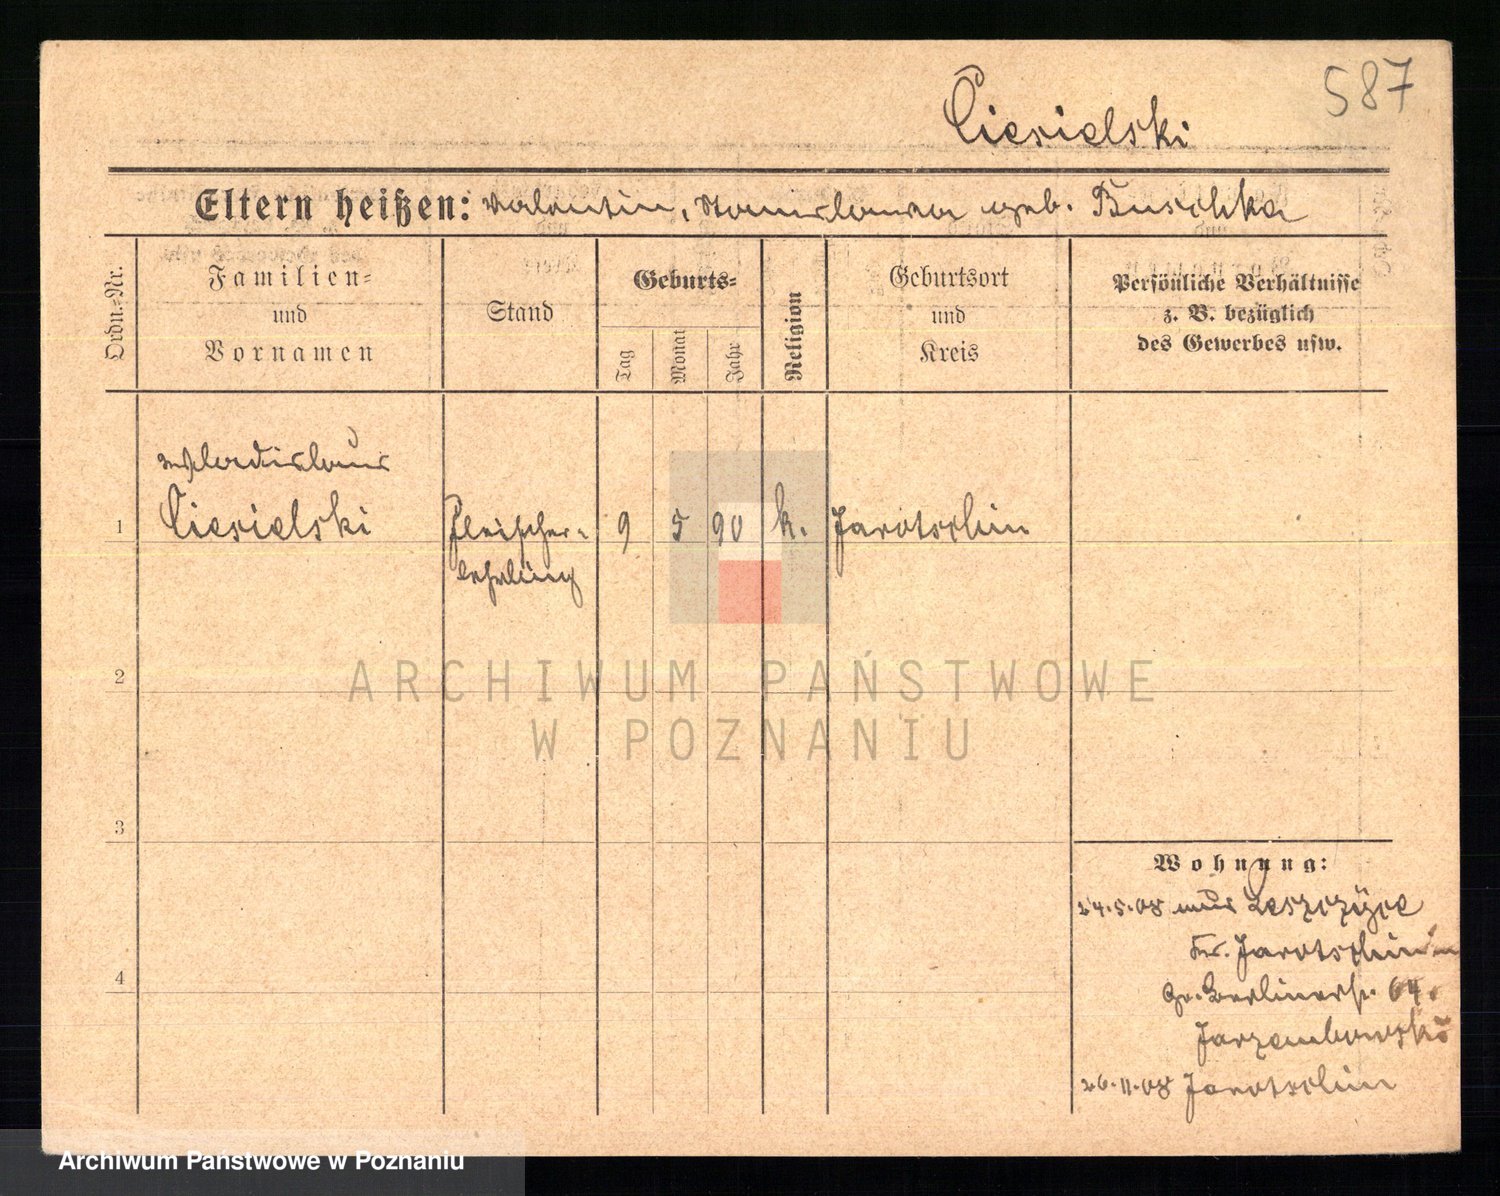 587
Ciesielski
Eltern heißen: Valentin, Stanislawa geb. Buschka
Ordn.-Nr.
Familien-
und
Vornamen
Stand
Geburts-
Tag
Monat
Jahr
Religion
Geburtsort
und
Kreis
Persönliche Verhältnisse
z. B. bezüglich
des Gewerbes usw.
Wladislaus
1 Ciesielski Fleischer- 9 5 90 k. Jarotschin
lehrling
2
3
4
Wohnung:
24.5.08 aus Leszczyce
Kr. Jarotschin
Gr. Berlinerstr. 64.
Jarzembowski
26.11.08 Jarotschin
ARCHIWUM PAŃSTWOWE
W POZNANIU
Archiwum Państwowe w Poznaniu